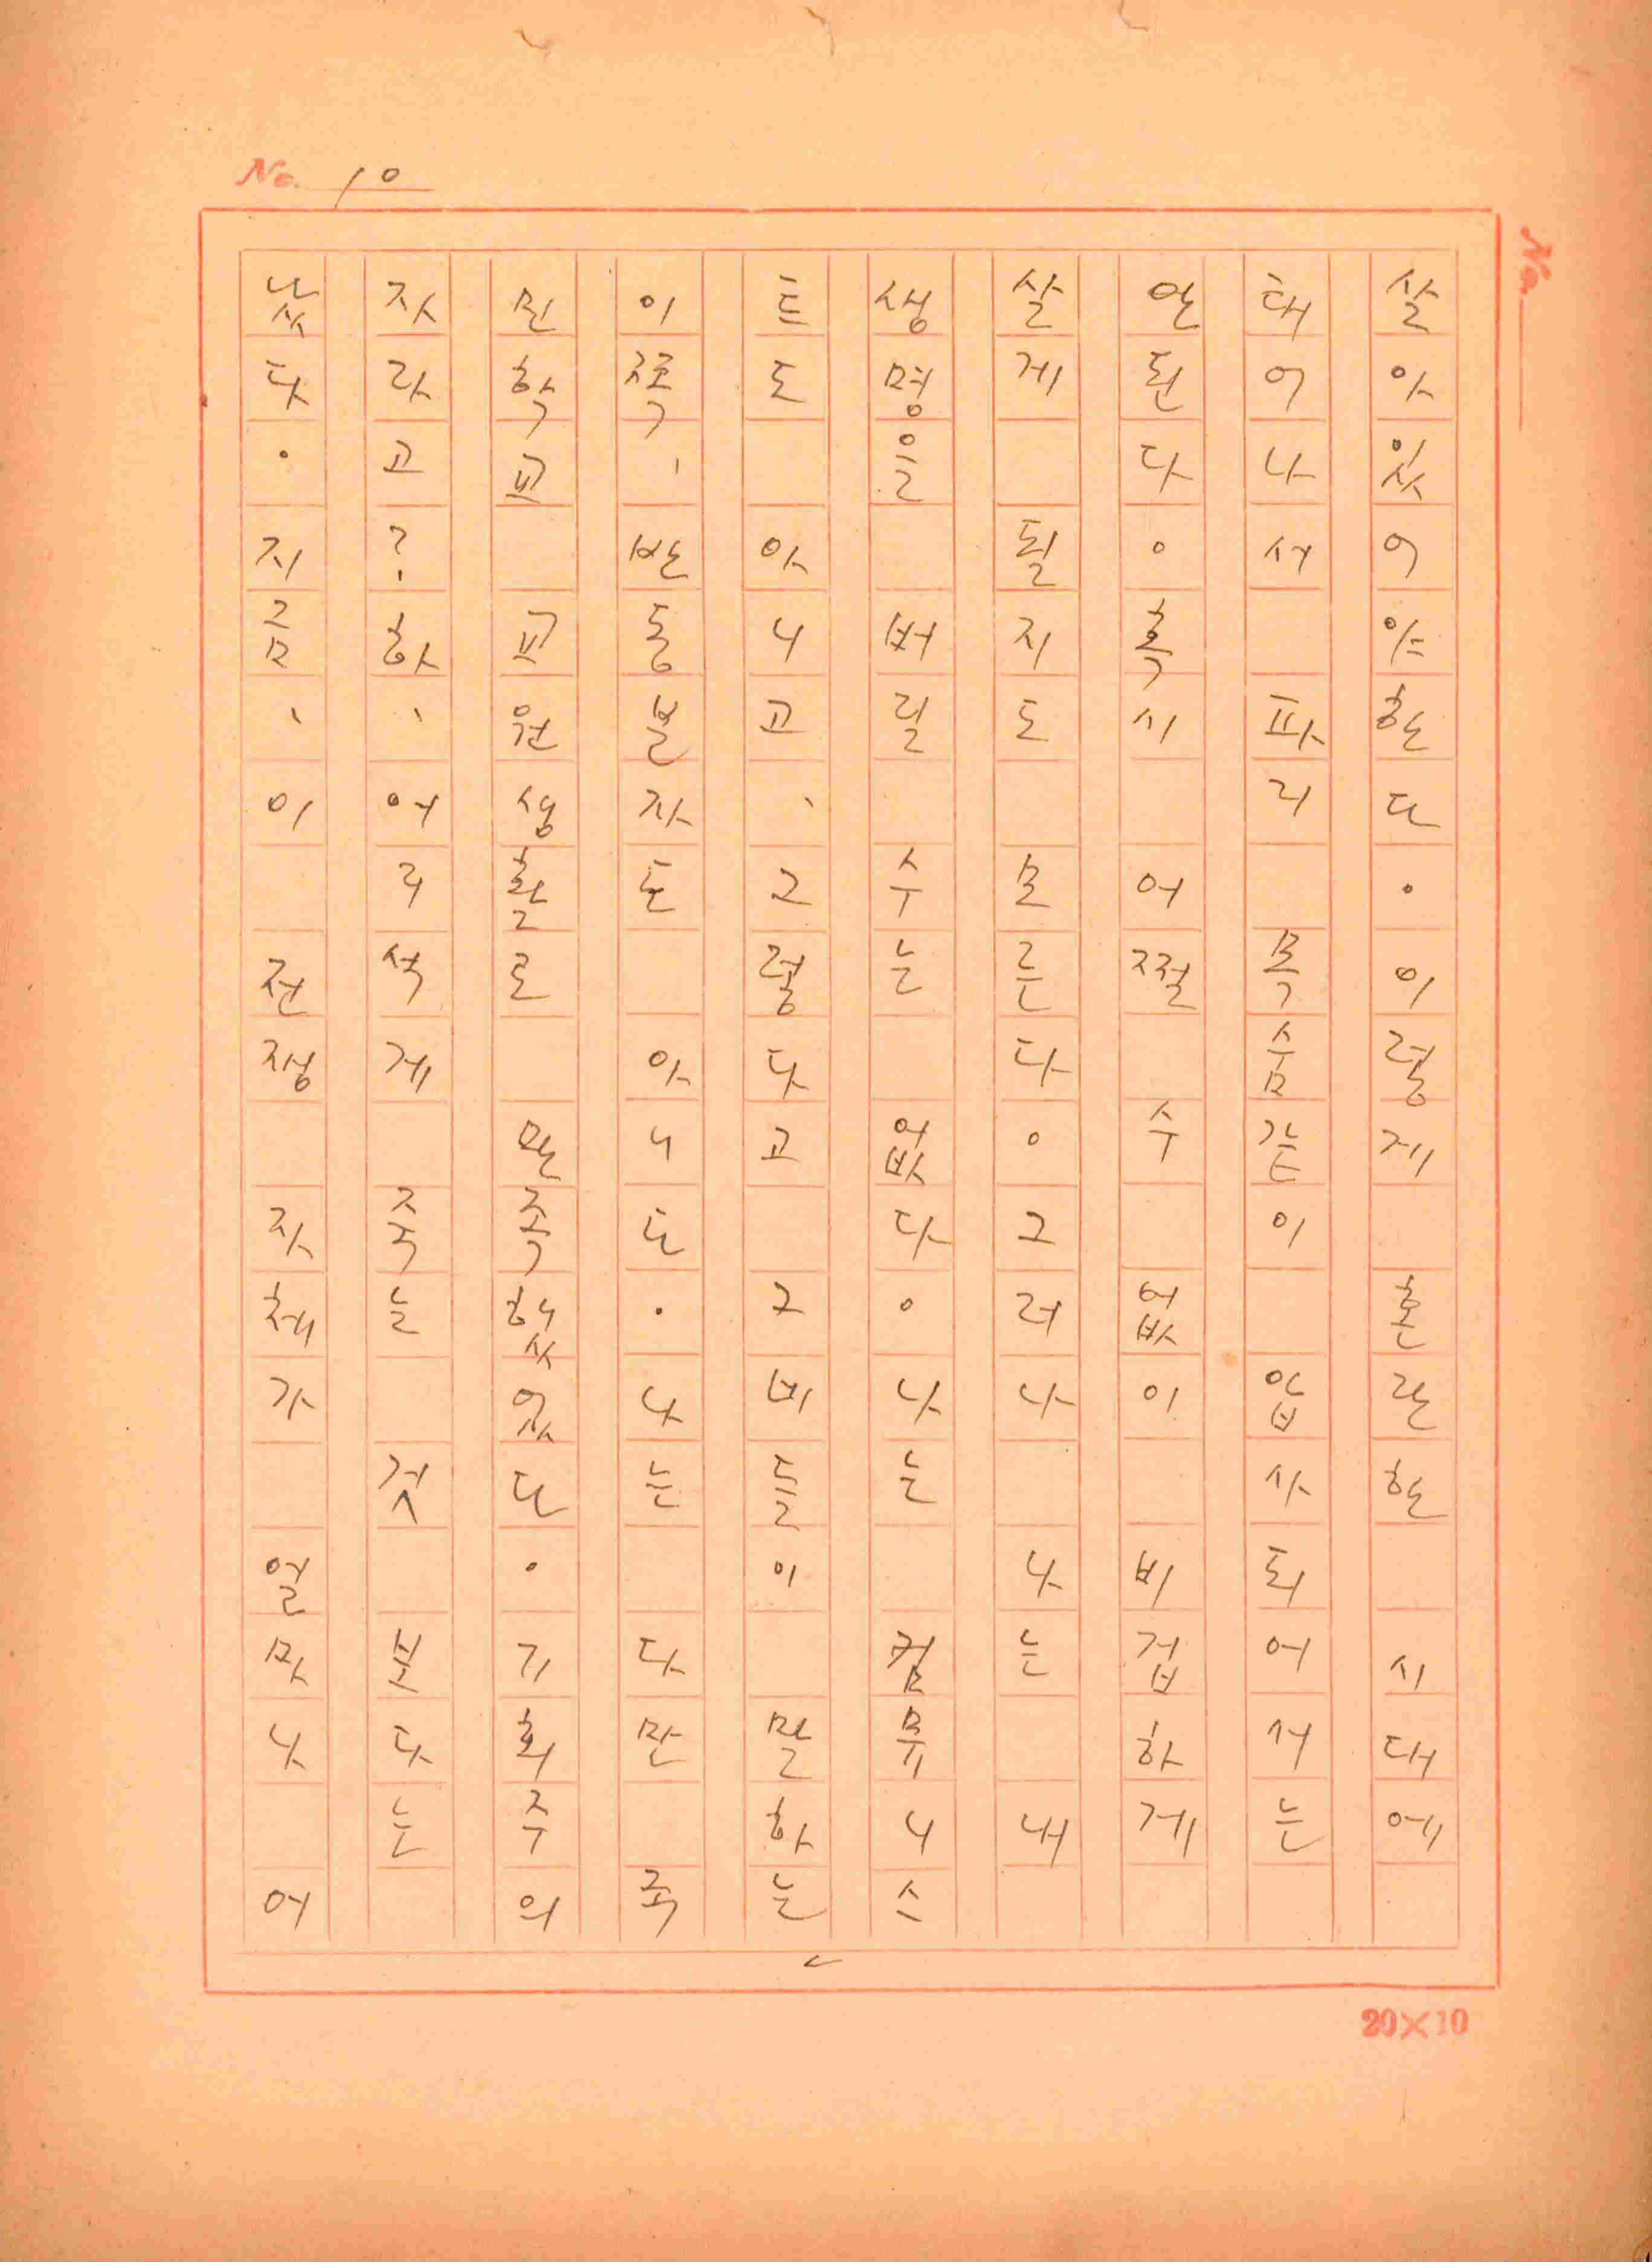 No. 10
No.
살아있어야한다.이렇게 혼란한 시대에
태어나서 파리 목숨같이 압사되어서는
안된다。혹시 어쩔 수 없이 비겁하게
살게 될지도 모른다。그러나 나는 내
생명을 버릴 수는 없다。나는 껌뮤니스
트도 아니고、그렇다고 구비들이 말하는
이쪽、반동분자도 아니다.나는 다만 국
민학교 교원생활로 만족했었다.기회주의
자라고?하、어리석게 죽는 것 보다는
낫다.지금、이 전쟁 자체가 얼마나 어
20×10